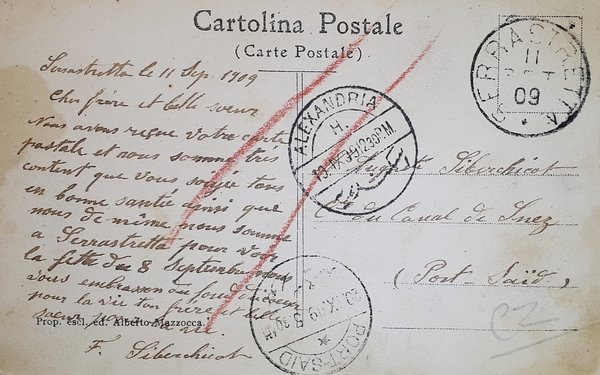 Cartolina Postale
(Carte Postale)
Serrastretta le 11 Sep. 1909
Cher frère et belle sœur
Nous avons reçue votre carte
postale et nous somme très
content que vous soyez tous
en bonne santé ainsi que
nous de même nous somme
a Serrastretta pour voir
la fête du 8 Septembre nous
vous embrassons
pour la vie ton frère et belle
sœur
F. Siberchicot
Prop. escl. ed. Alberto Mazzocca.
SERRASTRETTA
11
09
ALEXANDRIA
H.
12.30PM.
Siberchicot
du Canal de Suez
(Port-Saïd)
PORT-SAID
CZ